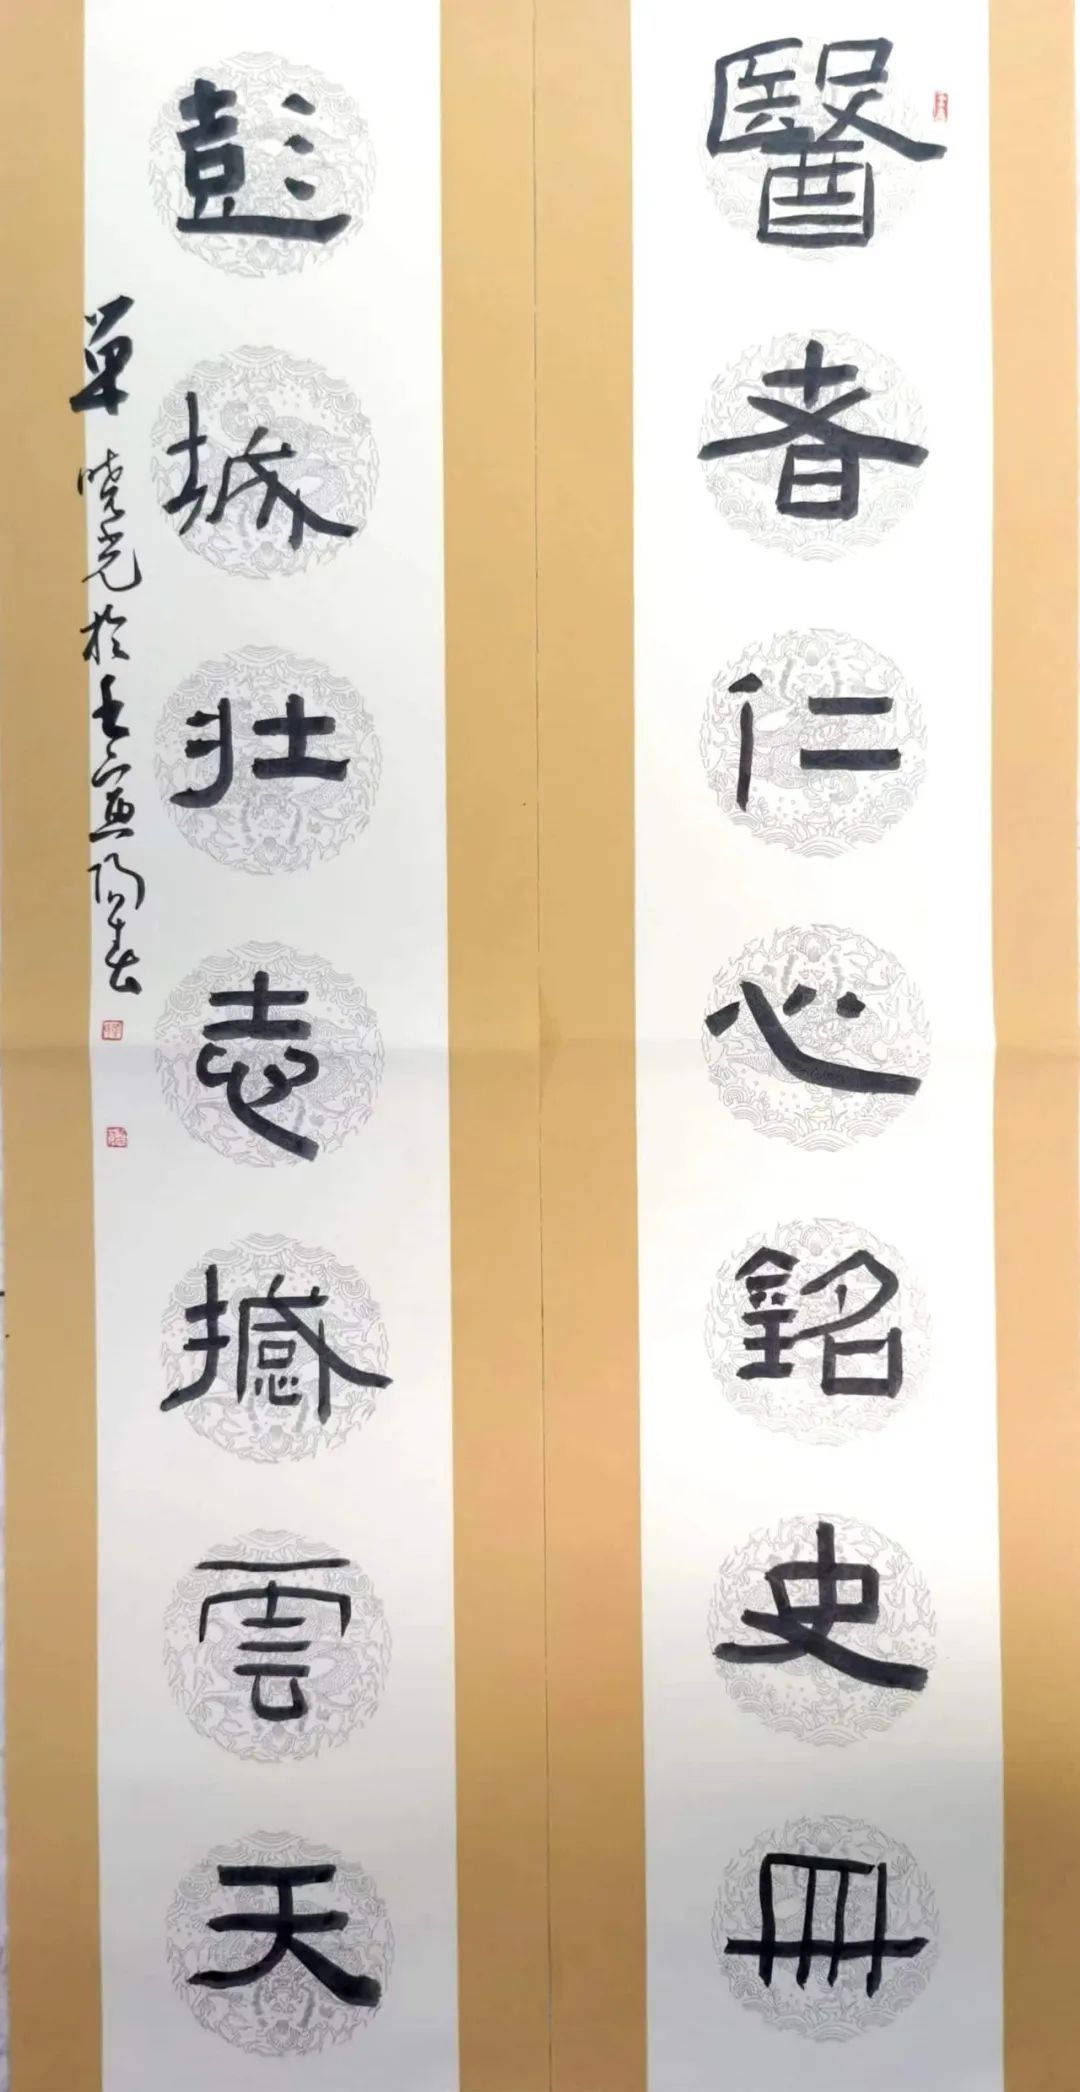 醫者仁心銘史冊
彭城壯志撼雲天
單曉光於壬寅陽春